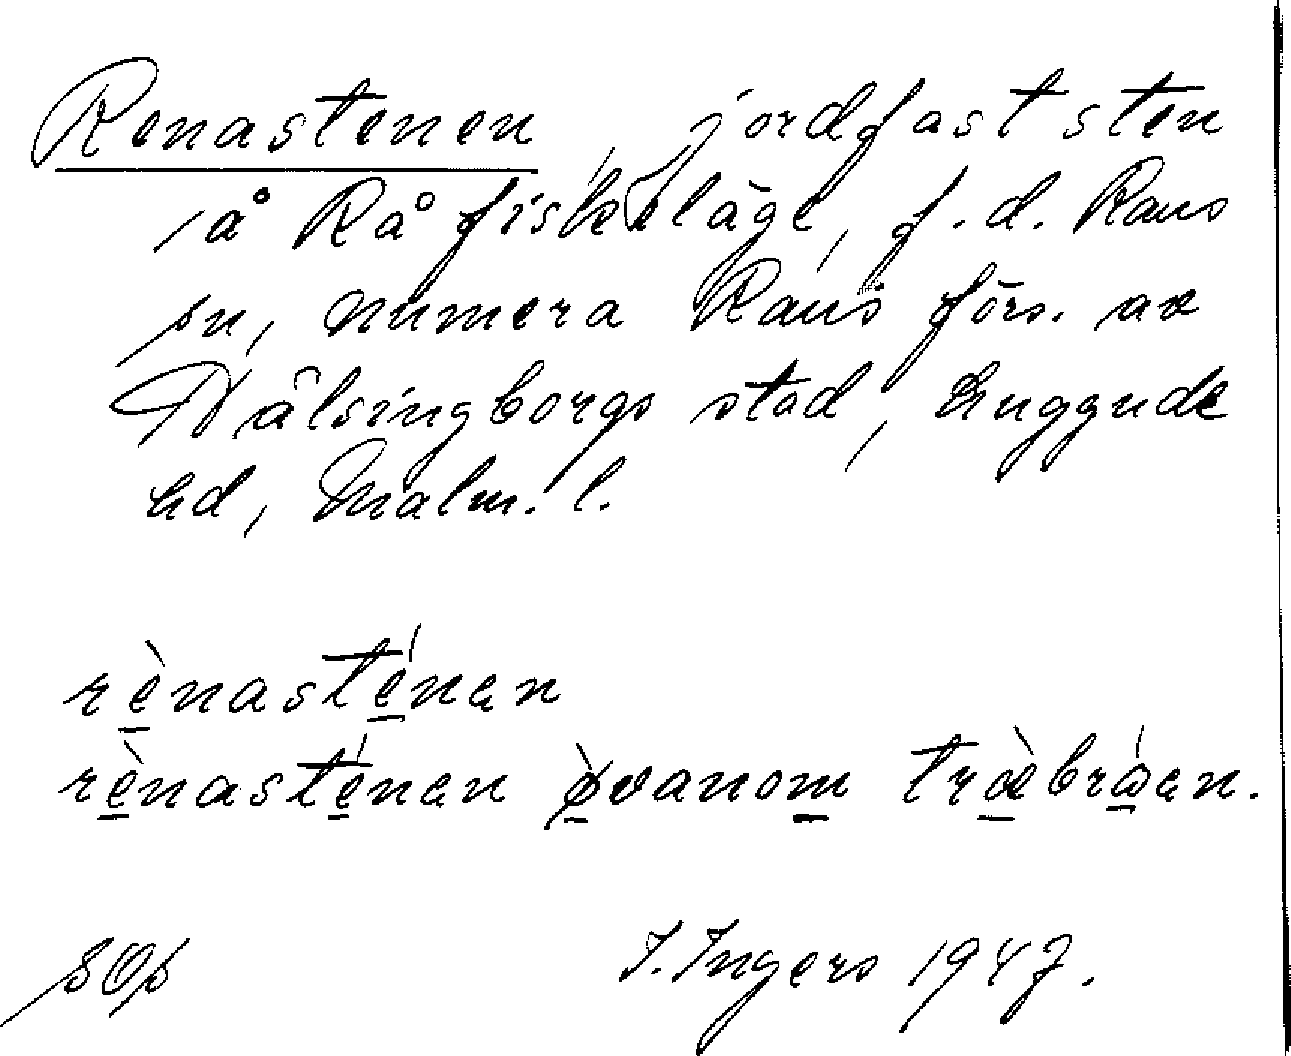 Renastenen, jordfast sten
i å Rå fiskeläge, f.d. Raus
sn, numera Raus förs. av
Hälsingborgs stad, Luggude
hd, Malm. l.
rènasténan
rènasténan øvanom træbråen.
I. Ingers 1947.